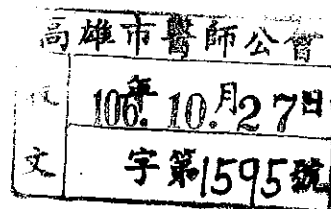 高雄市醫師公會
收 106年10月27日
文 字第1595號